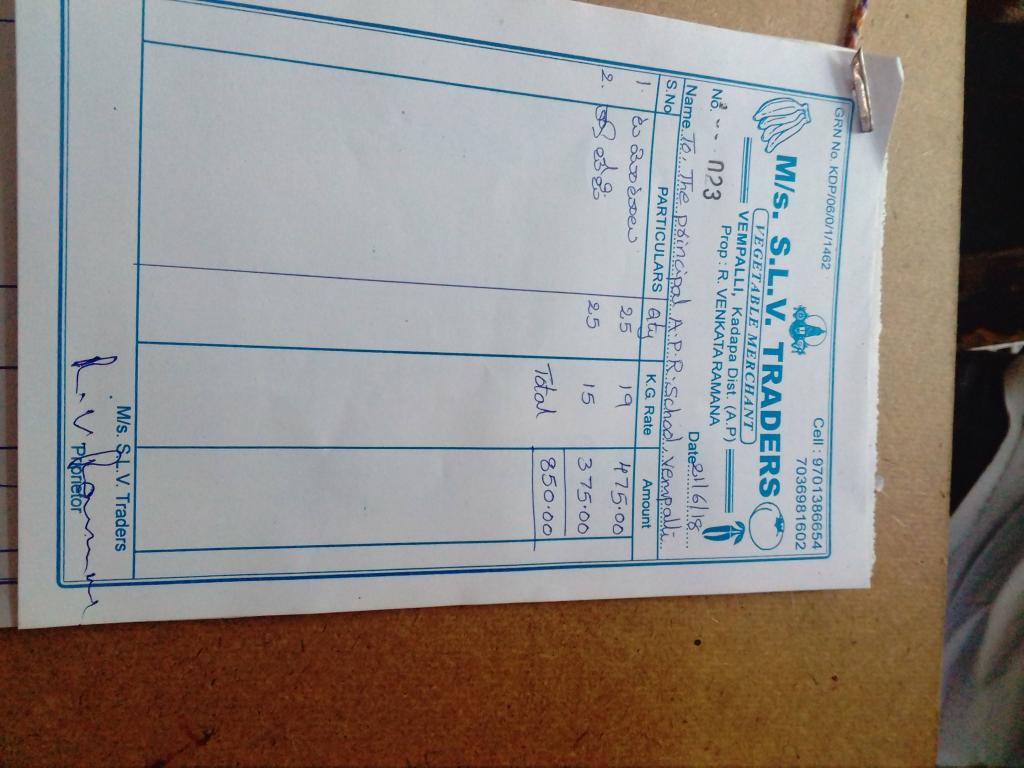 GRN No. KDP/06/0/1/1462
Cell : 9701386654
7036981602
M/s. S.L.V. TRADERS
VEGETABLE MERCHANT
VEMPALLI, Kadapa Dist. (A.P)
Prop : R. VENKATA RAMANA
No. 023
Date 21/6/18
Name To, The principal A.P.R. School, Vempalli.
S.No PARTICULARS Qty K.G. Rate Amount
1. 25 19 475.00
2. 25 15 375.00
Total 850.00
M/s. S.L.V. Traders
R. V Ramana
Proprietor